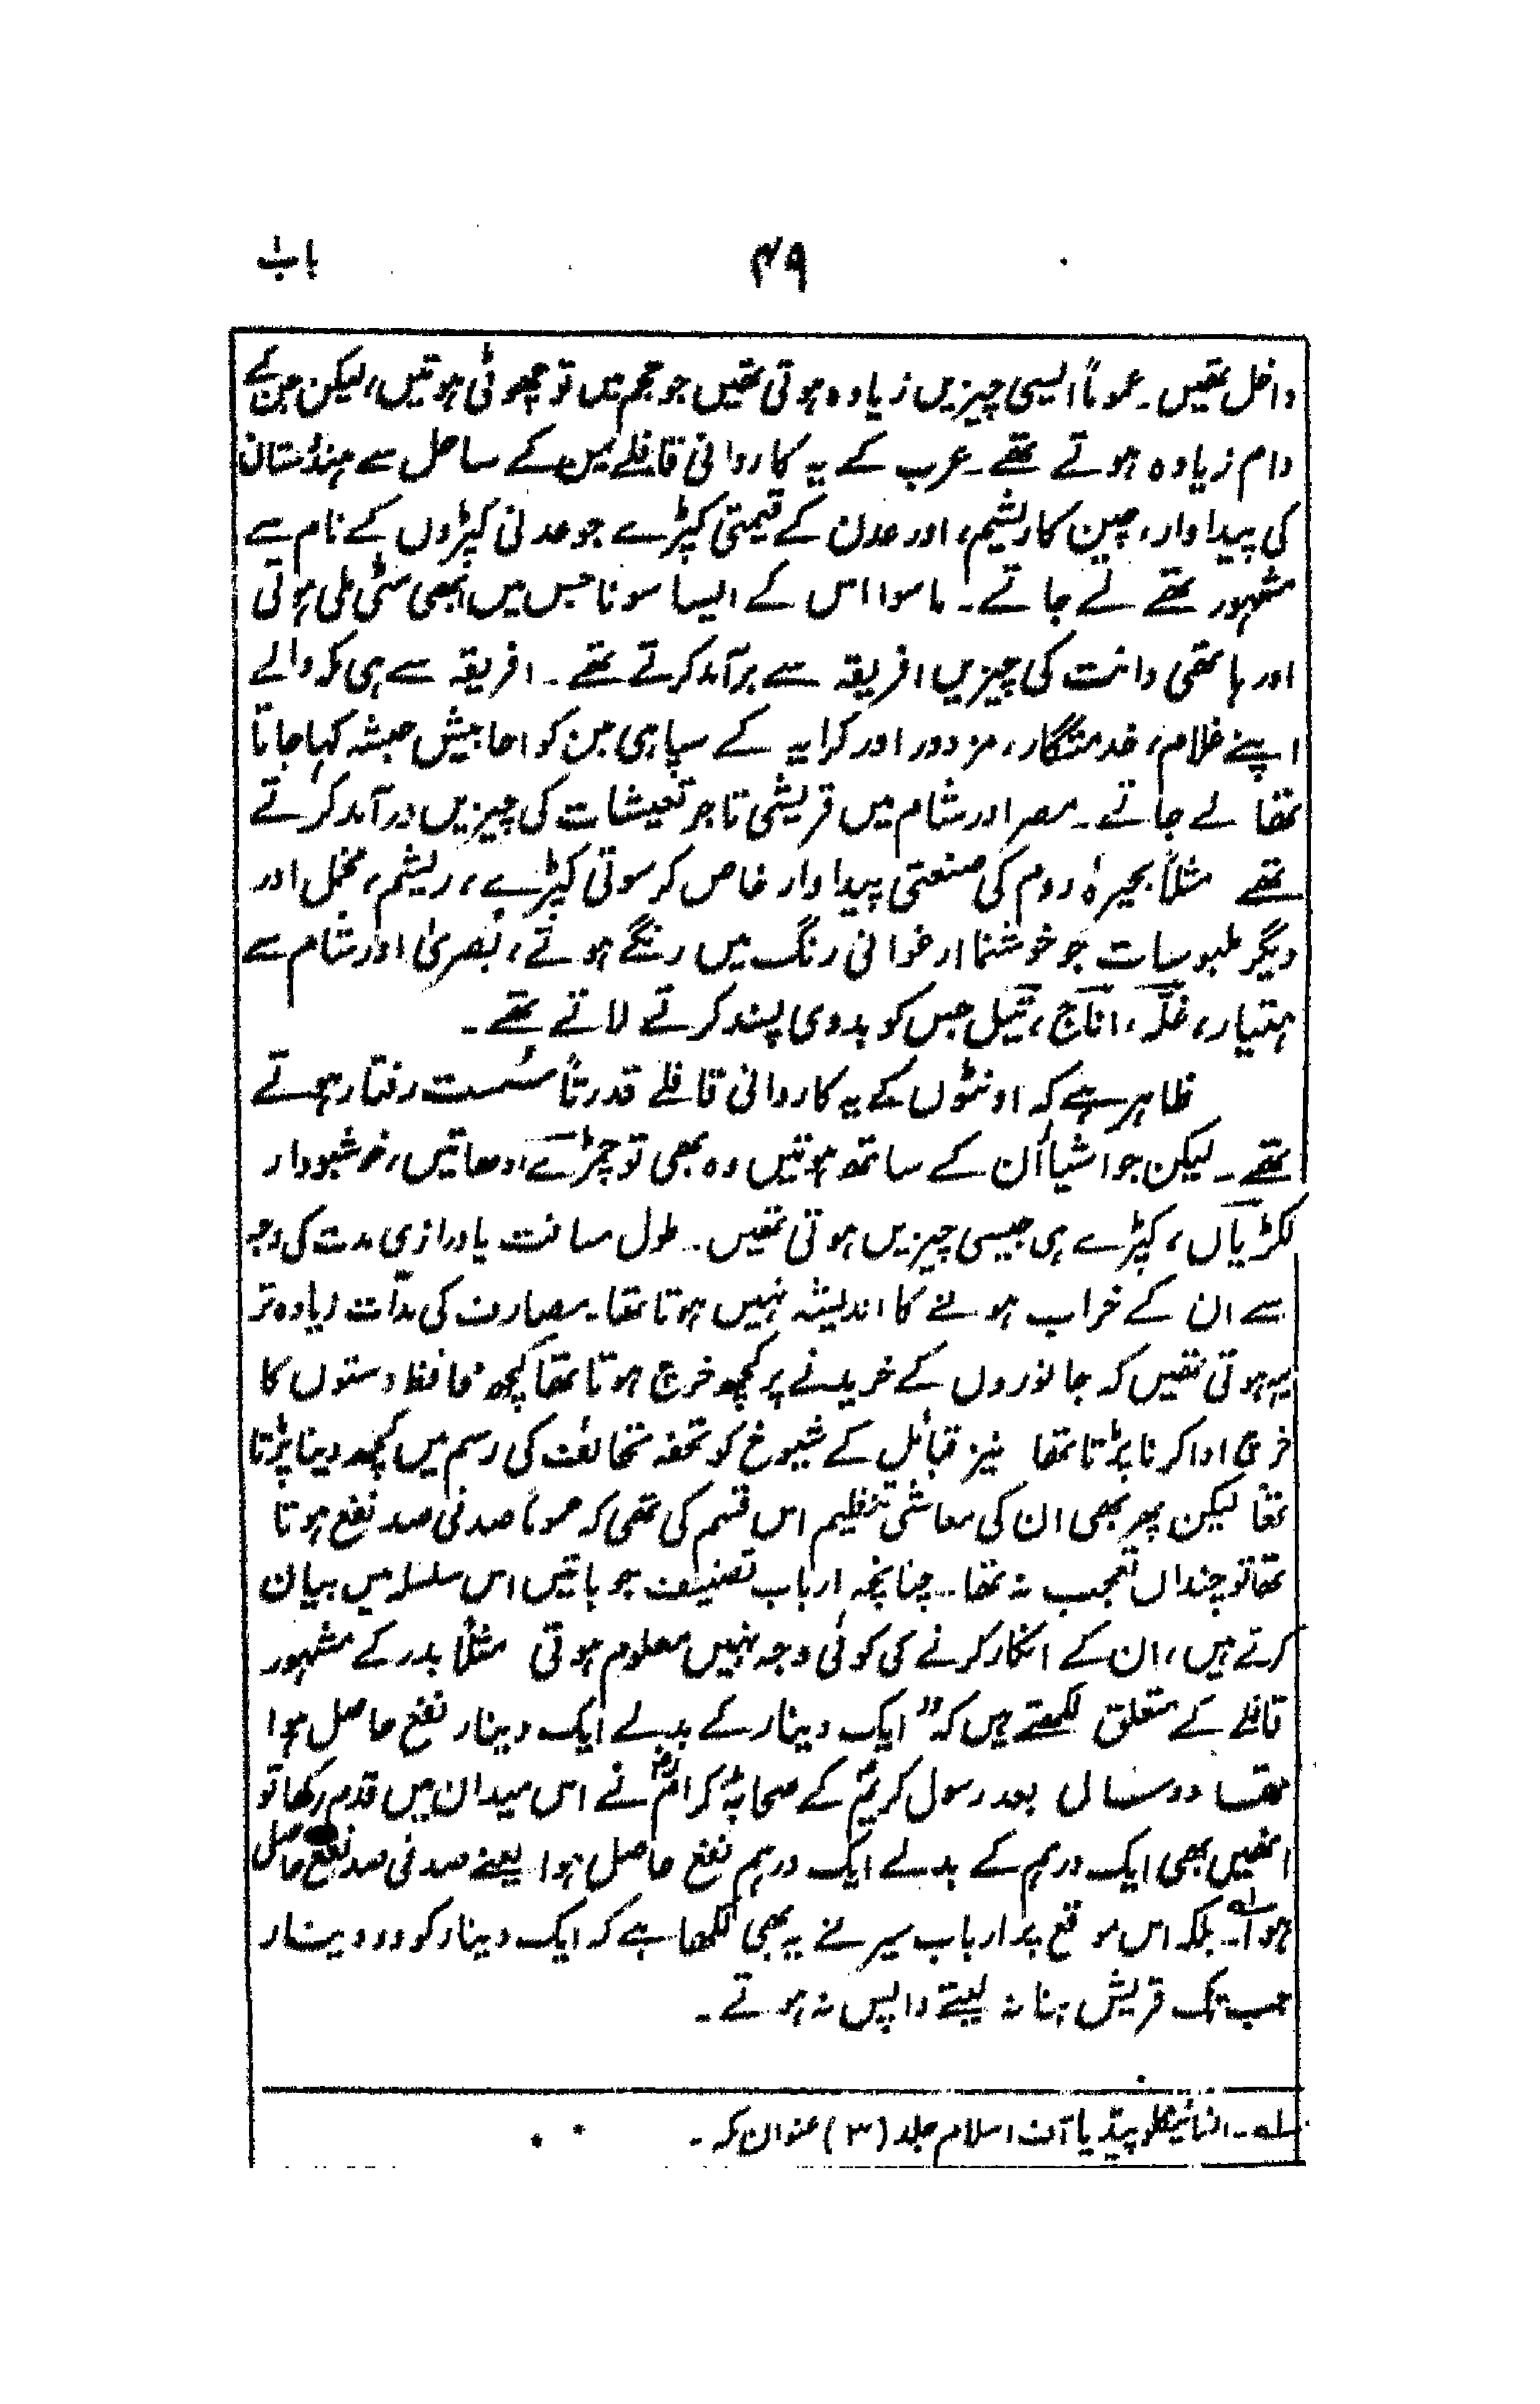 باب ۱
۴۹
داخل تھیں۔ عموماً ایسی چیزیں زیادہ ہوتی تھیں جو حجم میں تو چھوٹی ہوتیں، لیکن جن کے
دام زیادہ ہوتے تھے۔ عرب کے یہ کاروانی قافلے یمن کے ساحل سے ہندستان
کی پیداوار، چین کا ریشم، اور عدن کے قیمتی کپڑے جو عدنی کپڑوں کے نام سے
مشہور تھے لے جاتے۔ ماسوا اس کے ایسا سونا جس میں ابھی مٹی ملی ہوتی
اور ہاتھی دانت کی چیزیں افریقہ سے برآمد کرتے تھے۔ افریقہ سے ہی مکہ والے
اپنے غلام، خدمتگار، مزدور اور کرایہ کے سپاہی جن کو احابیش حبشہ کہا جاتا
تھا لے جاتے۔ مصر اور شام میں قریشی تاجر تعیشات کی چیزیں درآمد کرتے
تھے مثلاً بحیرۂ روم کی صنعتی پیداوار خاص کر سوتی کپڑے، ریشم، مخمل اور
دیگر ملبوسات جو خوشنما ارغوانی رنگ میں رنگے ہوتے، بُصریٰ اور شام سے
ہتیار، غلّہ، اناج، تیل جس کو بدوی پسند کرتے لاتے تھے۔
ظاہر ہے کہ اونٹوں کے یہ کاروانی قافلے قدرتاً سُست رفتار ہوتے
تھے۔ لیکن جو اشیا اُن کے ساتھ ہوتیں وہ بھی تو چمڑے، دھاتیں، خوشبودار
لکڑیاں، کپڑے ہی جیسی چیزیں ہوتی تھیں۔ طول مسافت یا درازی مدت کی وجہ
سے ان کے خراب ہونے کا اندیشہ نہیں ہوتا تھا۔ مصارف کی مدّات زیادہ تر
یہ ہوتی تھیں کہ جانوروں کے خریدنے پر کچھ خرچ ہوتا تھا کچھ محافظ دستوں کا
خرچ ادا کرنا پڑتا تھا نیز قبائل کے شیوخ کو تحفہ تحائف کی رسم میں کچھ دینا پڑتا
تھا لیکن پھر بھی ان کی معاشی تنظیم اس قسم کی تھی کہ عموماً صد فی صد نفع ہوتا
تھا تو چنداں تعجب نہ تھا۔ چنانچہ ارباب تصنیف جو باتیں اس سلسلہ میں بیان
کرتے ہیں، ان کے انکار کرنے کی کوئی وجہ نہیں معلوم ہوتی مثلاً بدر کے مشہور
قافلے کے متعلق لکھتے ہیں کہ ”ایک دینار کے بدلے ایک دینار نفع حاصل ہوا
تھا دو سال بعد رسول کریمؐ کے صحابۂ کرامؓ نے اس میدان میں قدم رکھا تو
انھیں بھی ایک درہم کے بدلے ایک درہم نفع حاصل ہوا یعنے صد فی صد نفع حاصل
ہوا۔ لہ بلکہ اس موقع پر ارباب سیر نے یہ بھی لکھا ہے کہ ایک دینار کو دو دینار
جب تک قریش بنا نہ لیتے واپس نہ ہوتے۔
لہ۔ انسائیکلوپیڈیا آف اسلام جلد (۳) عنوان مکہ۔